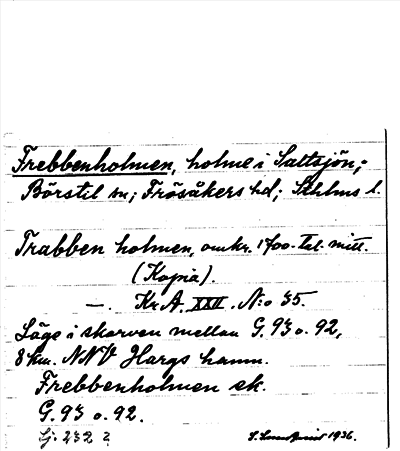 Frebbenholmen, holme i Saltsjön,
Börstil sn; Frösåkers hd; Sthlms l.
Trabben holmen, omkr. 1700-tal. mitt.
(Kopia).
—. Kr. A. XXII. N:o 35.
Läge i skarven mellan G. 93 o. 92,
8 km. NNV Hargs hamn.
Frebbenholmen ek.
G. 93 o. 92.
Lj. 232 ?
1936.